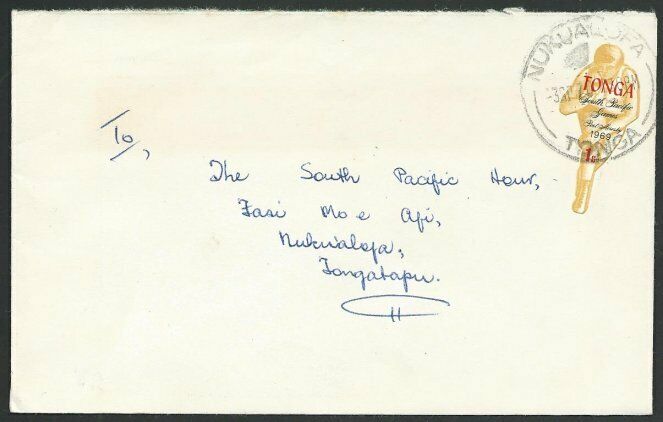 NUKUALOFA
TONGA
South Pacific
Games
Port Moresby
1969
TONGA
To,
The South Pacific Hour,
Fasi Mo e Afi,
Nukualofa,
Tongatapu.